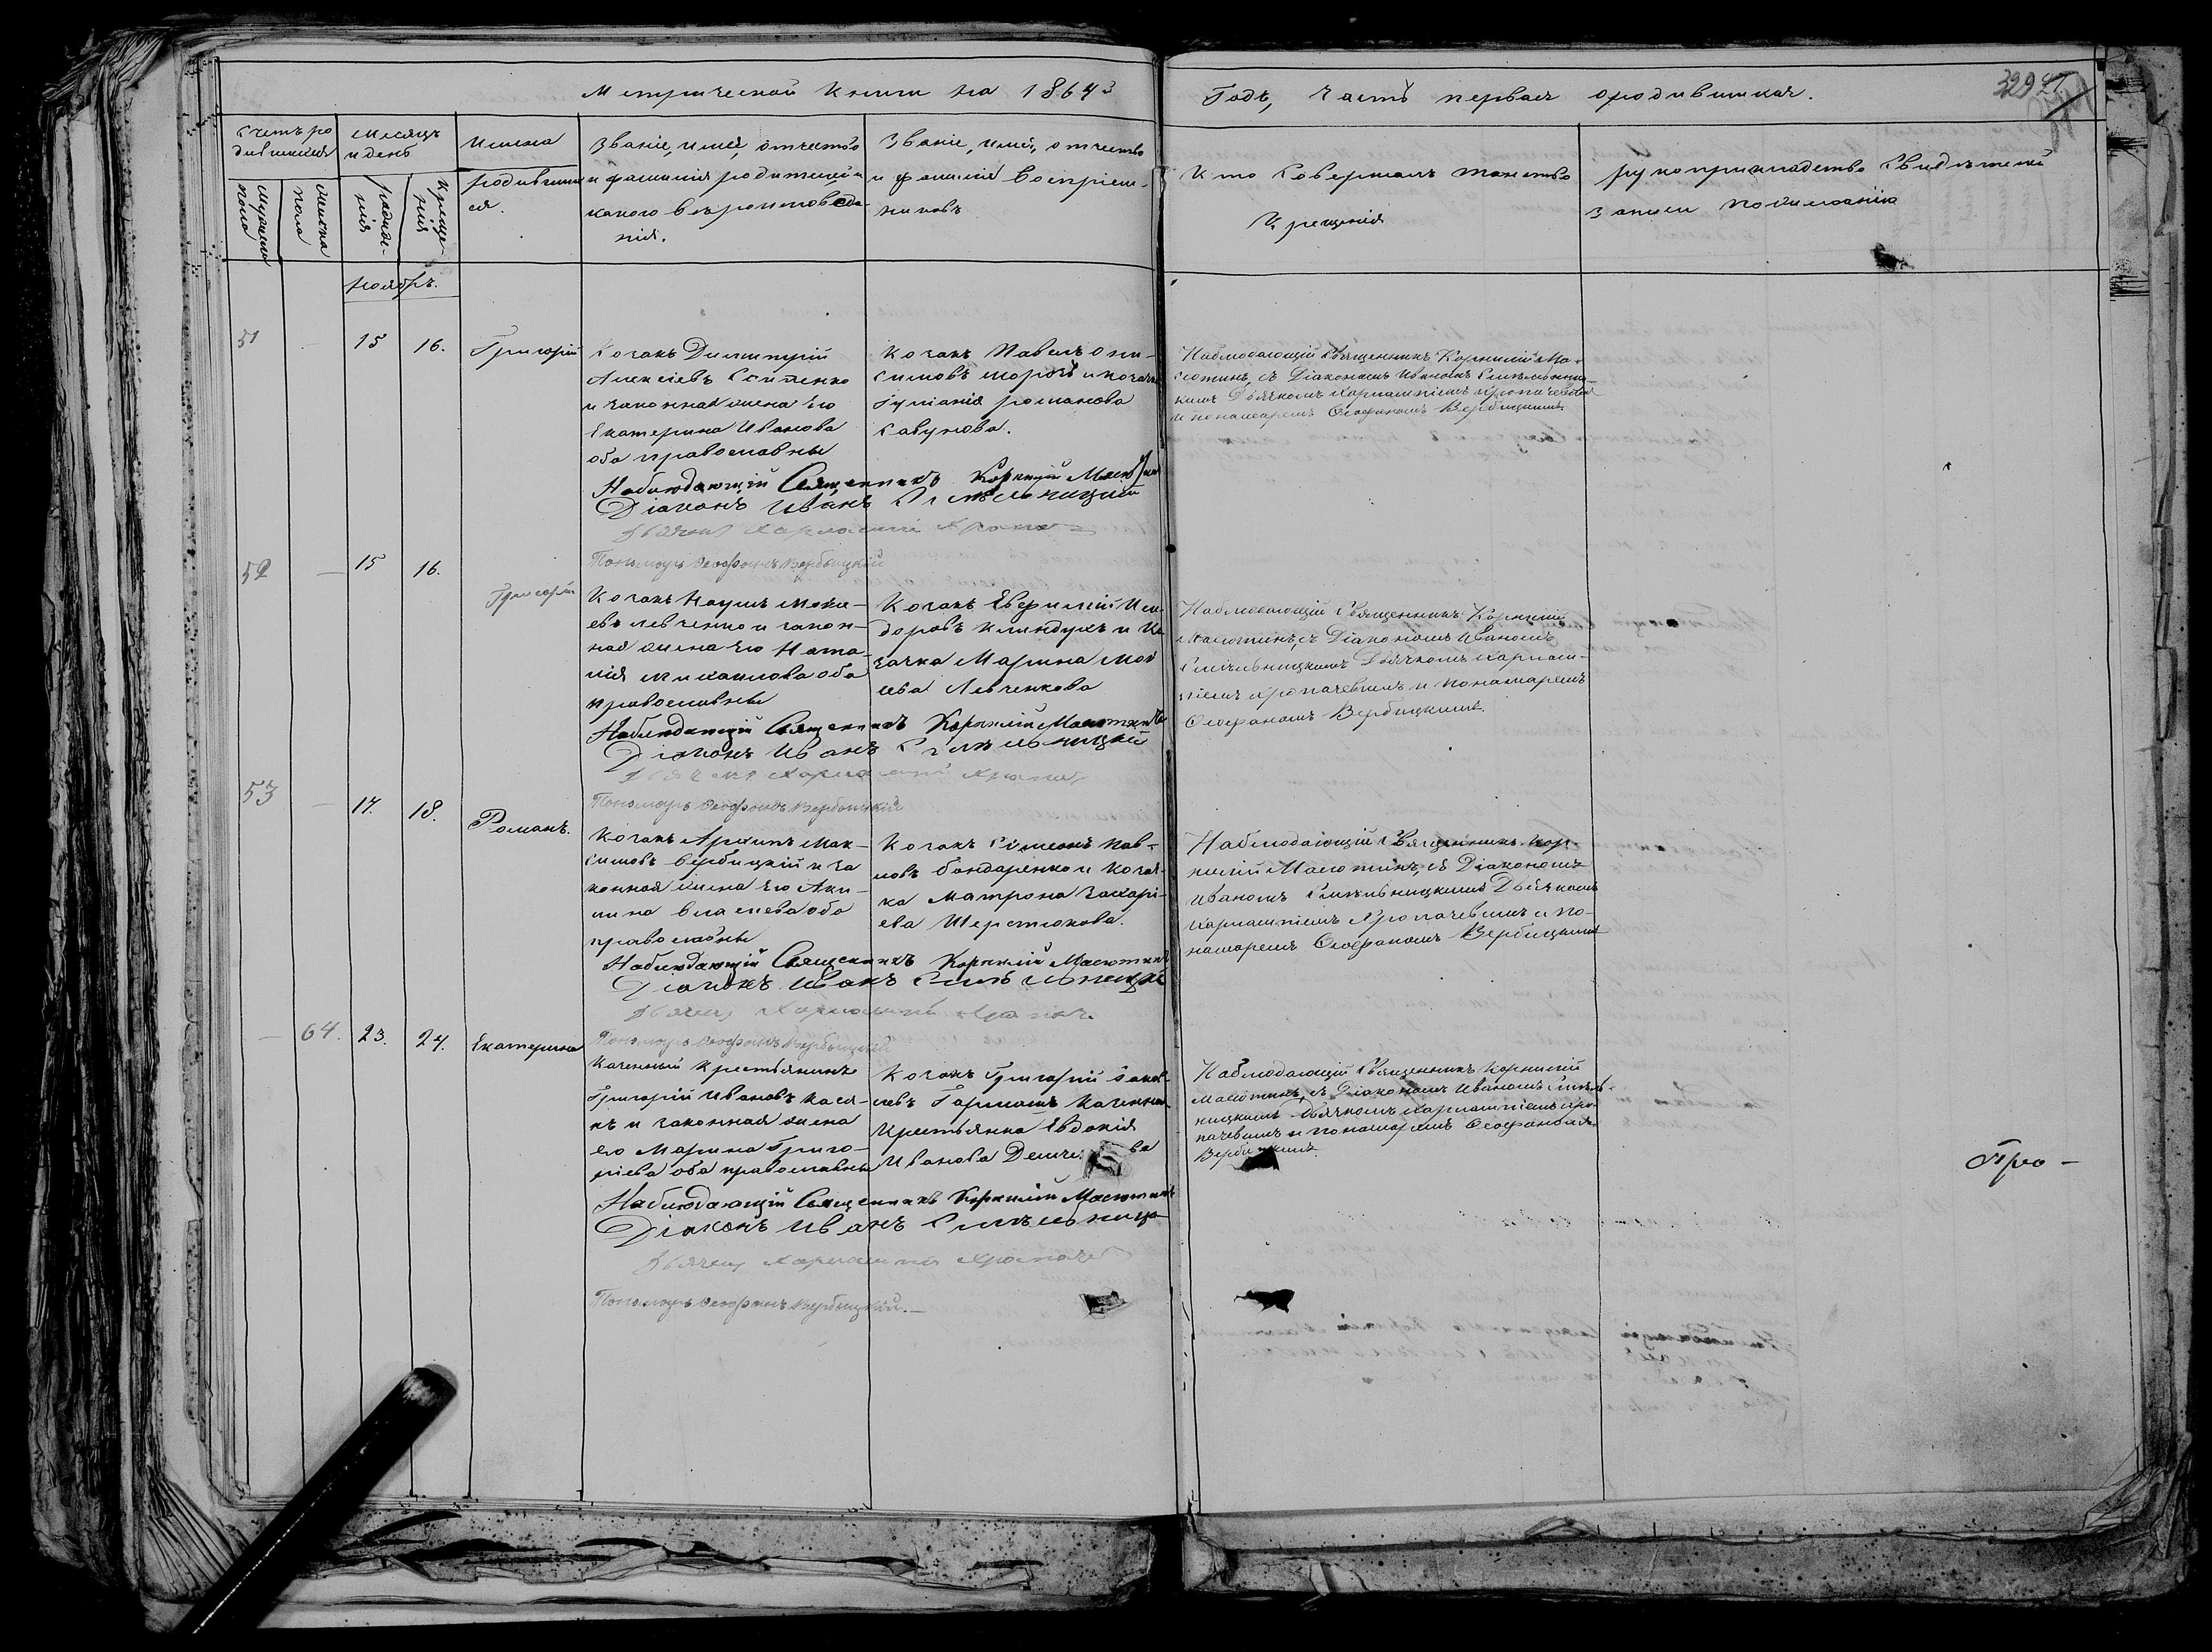 Метрической Книги на 1864й
Годъ, Часть первая о родившихся.
329
Счетъ ро
дившихся
Мужеска
пола
Женска
пола
Месяцъ
и день
рожде-
нія
креще-
нія
Имена
родивших
ся.
Званіе, имя, отчество
и фамилія родителей и
какого вѣроисповѣда
нія.
Званіе, имя, отчество
и фамилія воспріем-
никовъ
Кто совершалъ таинство
Крещенія
рукоприкладство свидѣтелей
записи по желанію
Ноябрь.
51 15 16. Григорій
Козакъ Димитрій
Алексіевъ
и законная жена его
Екатерина Иванова
оба православны
Козакъ Павелъ Они-
симовъ морозъ и козачка
Іуліанія романова
Савунова.
Наблюдающій Священникъ Корнилій Ма-
сютинъ, съ Діакономъ Иваномъ
Дьячкомъ Харлампіемъ
и понамаремъ Феофаномъ Вербицкимъ
Наблюдающій Священникъ Корнилій Масютинъ
Діаконъ Иванъ
Дьячекъ Харлампій
Пономарь Феофанъ Вербыцкій
52 — 15 16. Григорій
Козакъ Наумъ
евъ левченко и закон-
ная жена его Ната-
лія михаилова оба
православны
Козакъ Евфимій Иси
доровъ клиндухъ и Ко
зачка Марина Мои
сеева Левченкова
Наблюдающій Священникъ Корнилій
Масютинъ, съ Діакономъ Иваномъ
Дьячкомъ Харлам-
піемъ Хропачевымъ и Понамаремъ
Феофаномъ Вербицкимъ.
Наблюдающій Священникъ Корнилій Масютинъ
Діаконъ Иванъ
Дьячекъ Харлампій
Пономарь Феофанъ Вербыцкій
53 — 17. 18. Романъ.
Козакъ Архипъ Мак-
симовъ вербицкій и за
конная жена его Аки-
лина власиева оба
православны
Козакъ Симеонъ Пав-
ловъ бондаренко и козач
ка Матрона Захарі-
ева Шерстюкова.
Наблюдающій Священникъ Кор-
нилій Масютинъ, съ Діакономъ
Иваномъ Дьячкомъ
Харлампіемъ Хропачевымъ и по-
намаремъ Феофаномъ Вербицкимъ
Наблюдающій Священникъ Корнилій Масютинъ
Діаконъ Иванъ
Дьячекъ Харлампій
Пономарь Феофанъ Вербыцкій
— 64. 23. 24. Екатерина
Казенный крестьянинъ
Григорій Ивановъ
и законная жена
его Марина Григо-
ріева оба православны
Козакъ Григорій Яков
левъ Казенная
Крестьянка Евдокія
Иванова
Наблюдающій Священникъ Корнилій
Масютинъ, съ Діакономъ Иваномъ
Дьячкомъ Харлампіемъ Хро-
пачевымъ и понамаремъ Феофаномъ
Вербицкимъ.
Наблюдающій Священникъ Корнилій Масютинъ
Діаконъ Иванъ
Дьячекъ Харлампій
Пономарь Феофанъ Вербыцкій.—